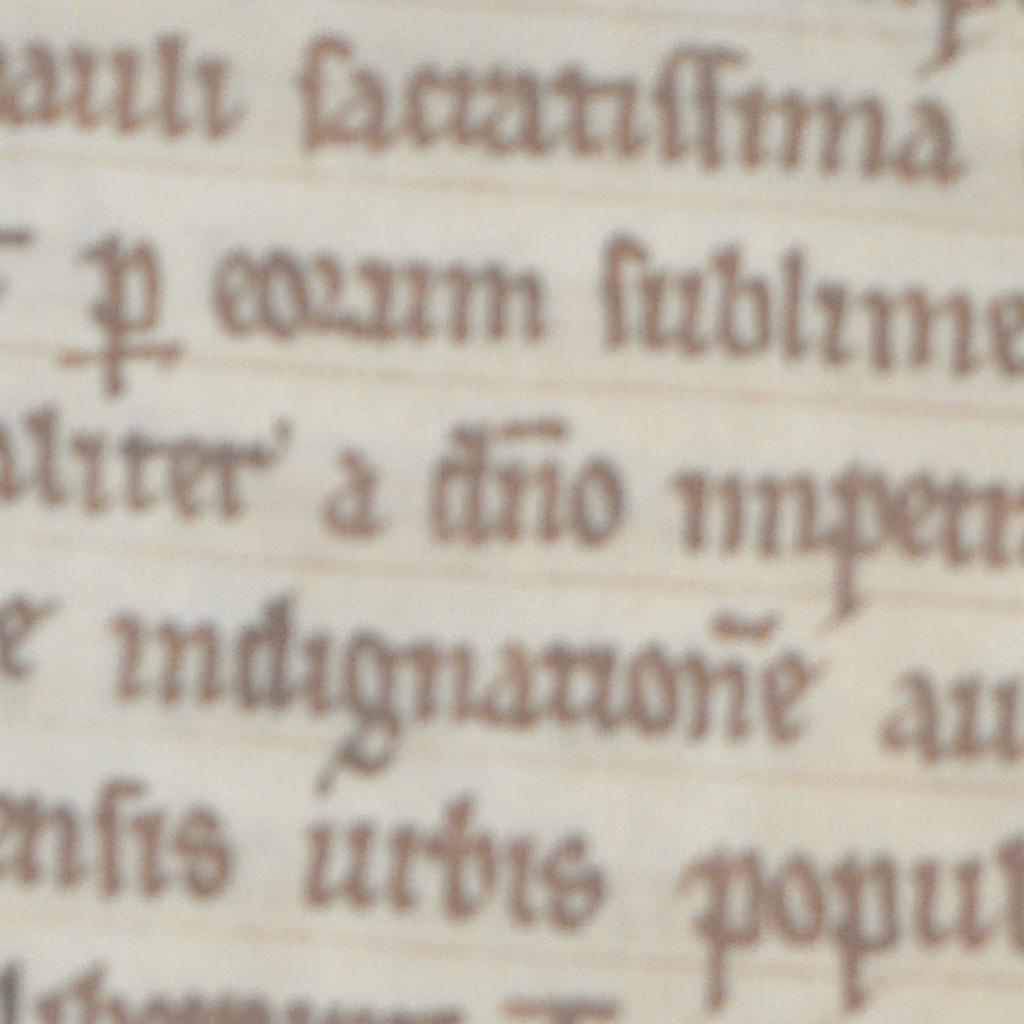 pauli sacratissima
ꝑ eorum sublime
aliter a dn̄o impetr
indignationē au
ensis urbis popul